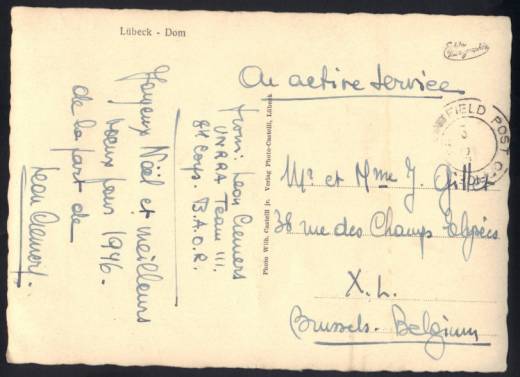 Lübeck - Dom
Joyeux Noël et meilleurs
voeux pour 1946.
de la part de
Léon Clemers.
from: Leon Clemers
UNRRA Team 111.
8th Corps. B.A.O.R.
Photo Wilh. Castelli jr. Verlag Photo-Castelli, Lübeck
On active service
FIELD POST
Mr et Mme J.
38 rue des Champs Elysées
X.L.
Brussels. Belgium